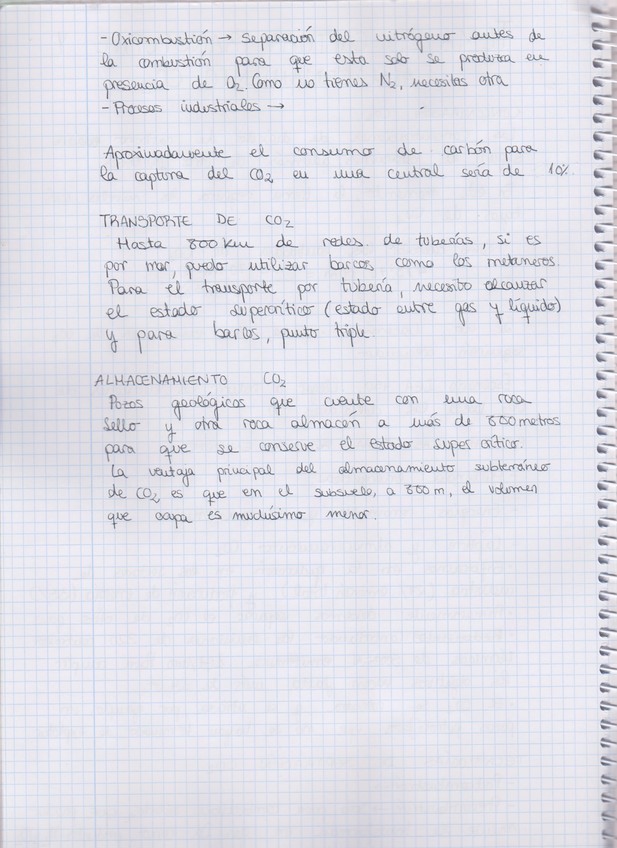 - Oxicombustión → separación del nitrógeno antes de
la combustión para que esta solo se produzca en
presencia de O2. Como no tienes N2, necesitas otra
- Procesos industriales →
Aproximadamente el consumo de carbón para
la captura del CO2 en una central sería de 10%.
TRANSPORTE DE CO2
Hasta 800 km de redes de tuberías, si es
por mar, puedo utilizar barcos como los metaneros.
Para el transporte por tubería, necesito alcanzar
el estado supercrítico (estado entre gas y líquido)
y para barcos, punto triple
ALMACENAMIENTO CO2
Pozos geológicos que cuente con una roca
sello y otra roca almacén a más de 800 metros
para que se conserve el estado super crítico.
La ventaja principal del almacenamiento subterráneo
de CO2 es que en el subsuelo, a 800 m, el volumen
que ocupa es muchísimo menor.